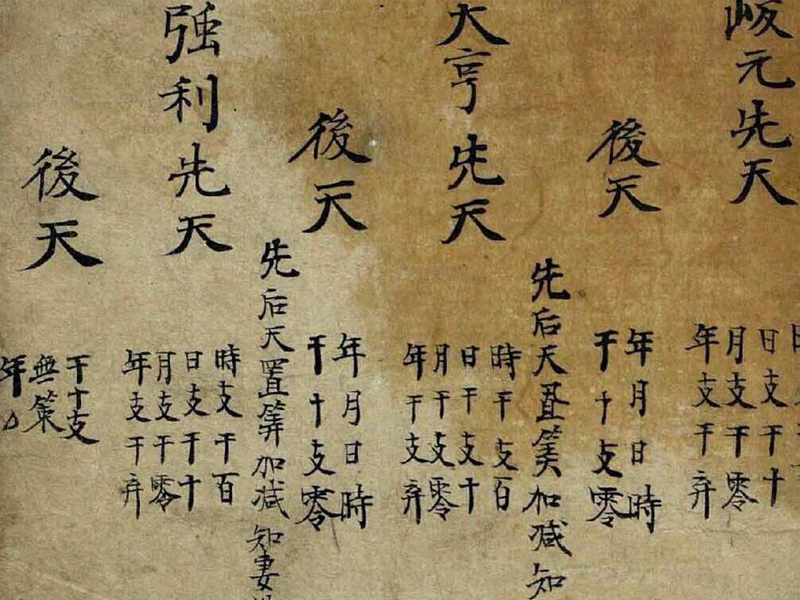 元先天
日支干十
月支干零
年支干弃
後天
年月日時
干十支零
先后天置筭加减知
大亨先天
時干支百
日干支十
月干支零
年干支弃
後天
年月日時
干十支零
先后天置筭加减知妻
強利先天
時支干百
日支干十
月支干零
年支干弃
後天
干十支
無策
年